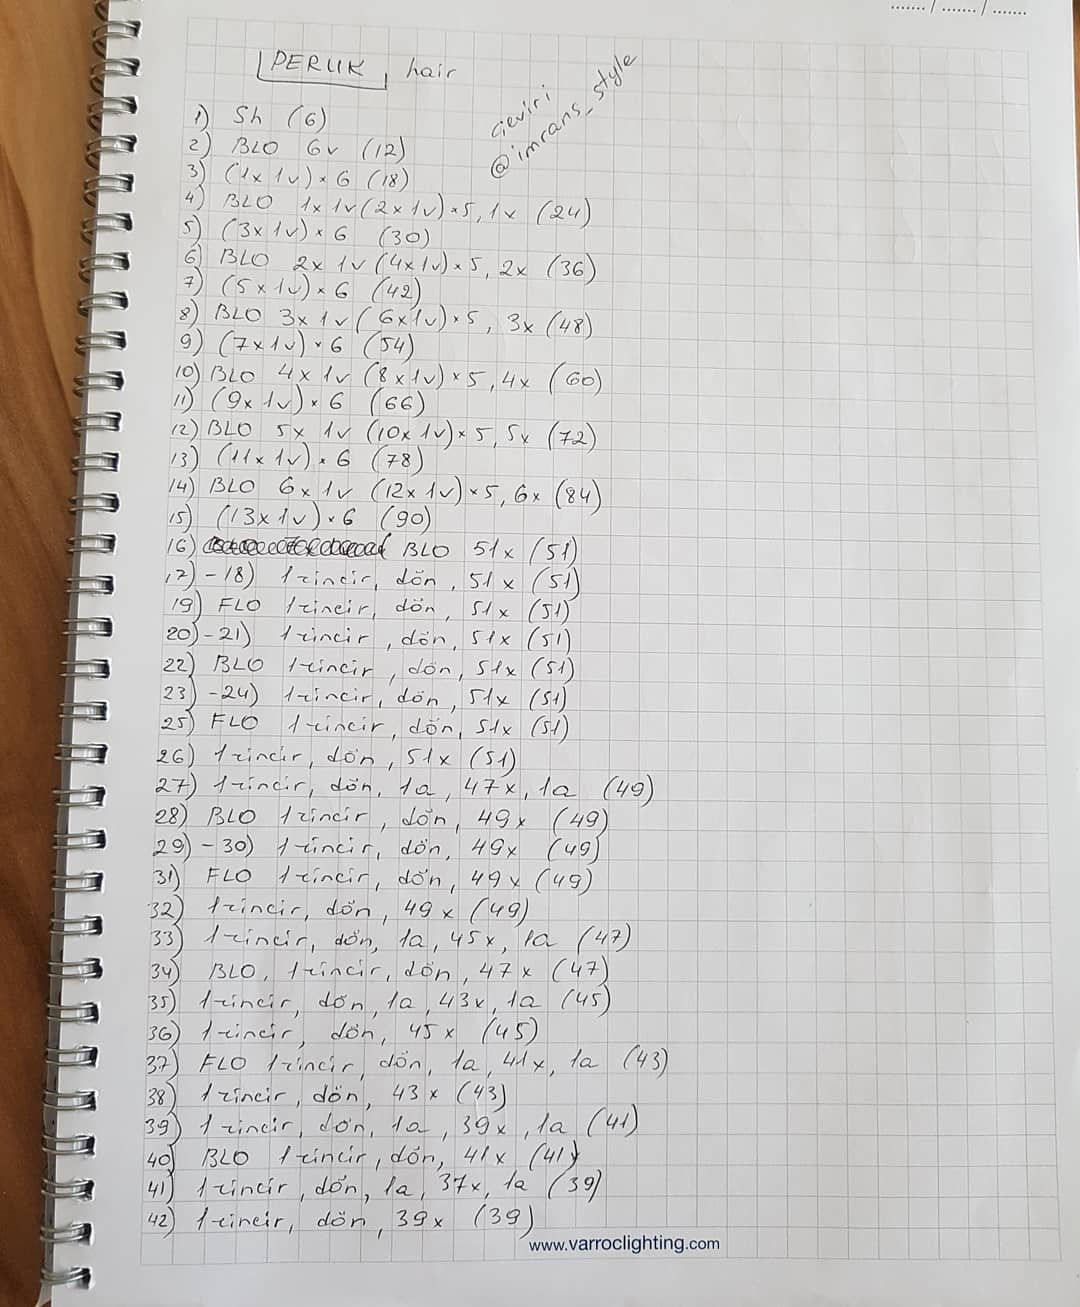 ....... / ....... / .......
PERUK, hair
çeviri
@imrans_style
1) Sh (6)
2) BLO 6v (12)
3) (1x 1v) × 6 (18)
4) BLO 1x 1v (2x 1v) × 5, 1x (24)
5) (3x 1v) × 6 (30)
6) BLO 2x 1v (4x 1v) × 5, 2x (36)
7) (5x 1v) × 6 (42)
8) BLO 3x 1v (6x 1v) × 5, 3x (48)
9) (7x 1v) × 6 (54)
10) BLO 4x 1v (8x 1v) × 5, 4x (60)
11) (9x 1v) × 6 (66)
12) BLO 5x 1v (10x 1v) × 5, 5x (72)
13) (11x 1v) × 6 (78)
14) BLO 6x 1v (12x 1v) × 5, 6x (84)
15) (13x 1v) × 6 (90)
16) BLO 51x (51)
17) - 18) 1 zincir, dön, 51x (51)
19) FLO 1 zincir, dön, 51x (51)
20) - 21) 1 zincir, dön, 51x (51)
22) BLO 1 zincir, dön, 51x (51)
23) - 24) 1 zincir, dön, 51x (51)
25) FLO 1 zincir, dön, 51x (51)
26) 1 zincir, dön, 51x (51)
27) 1 zincir, dön, 1a, 47x, 1a (49)
28) BLO 1 zincir, dön, 49x (49)
29) - 30) 1 zincir, dön, 49x (49)
31) FLO 1 zincir, dön, 49x (49)
32) 1 zincir, dön, 49x (49)
33) 1 zincir, dön, 1a, 45x, 1a (47)
34) BLO, 1 zincir, dön, 47x (47)
35) 1 zincir, dön, 1a, 43x, 1a (45)
36) 1 zincir, dön, 45x (45)
37) FLO 1 zincir, dön, 1a, 41x, 1a (43)
38) 1 zincir, dön, 43x (43)
39) 1 zincir, dön, 1a, 39x, 1a (41)
40) BLO 1 zincir, dön, 41x (41)
41) 1 zincir, dön, 1a, 37x, 1a (39)
42) 1 zincir, dön, 39x (39)
www.varroclighting.com